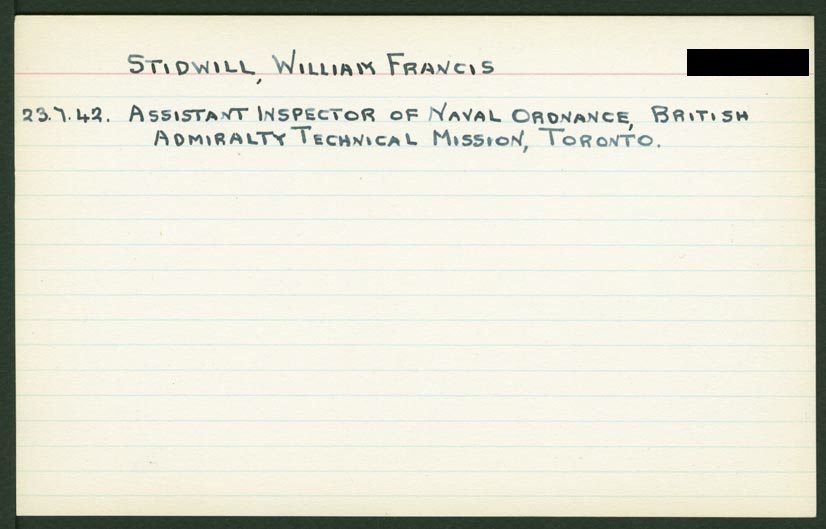 STIDWILL, WILLIAM FRANCIS
23.7.42. ASSISTANT INSPECTOR OF NAVAL ORDNANCE, BRITISH
ADMIRALTY TECHNICAL MISSION, TORONTO.